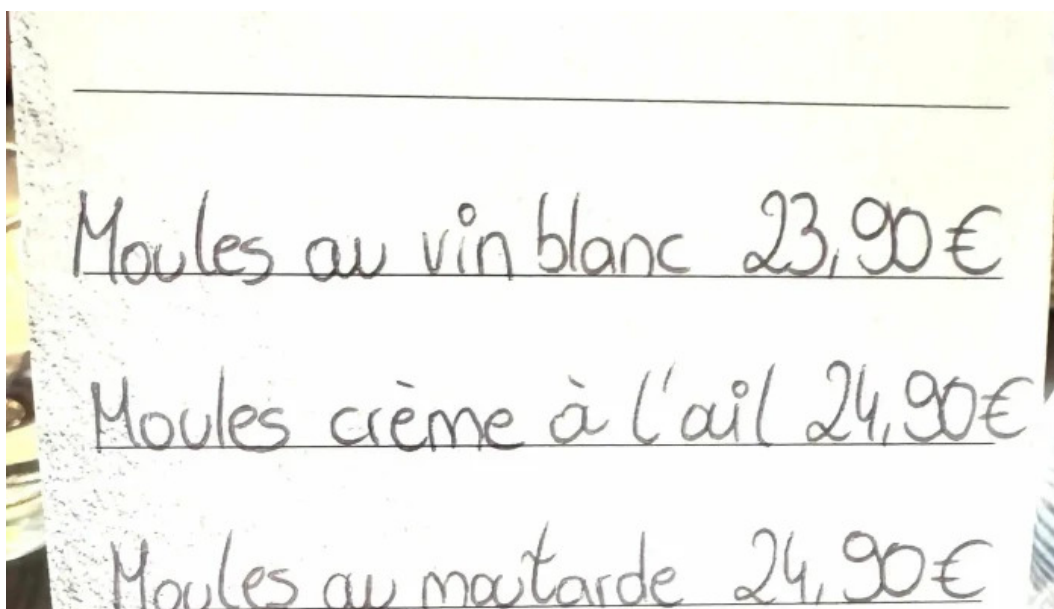 Moules au vin blanc 23,90€
Moules crème à l'ail 24,90€
Moules au moutarde 24,90€